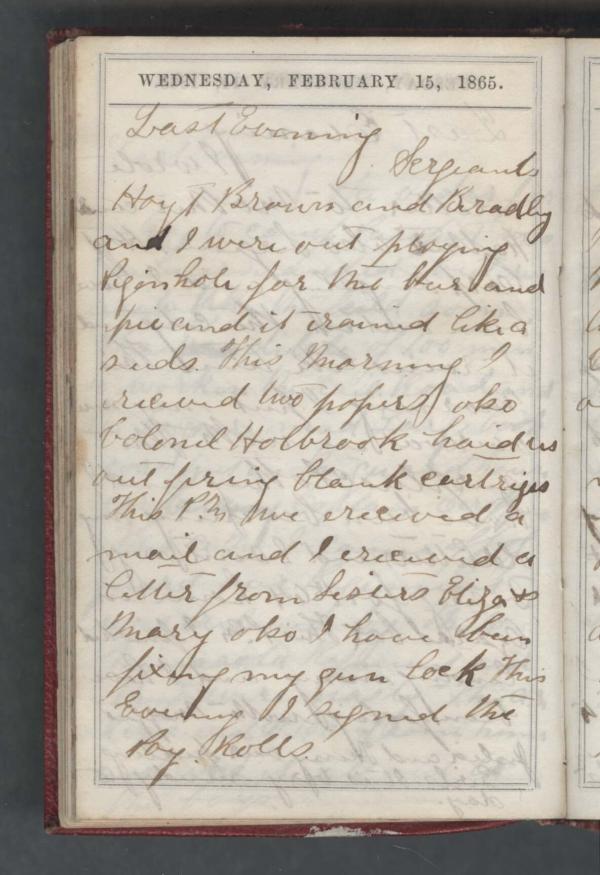 WEDNESDAY, FEBRUARY 15, 1865.
Last Evening
Sergeants
Hoyt Brown and Bradley
and I were out playing
Piginhole for the bur and
pie and it rained like a
suds. This Morning I
recieved two papers) also
Colonel Holbrook haid us
out firing blank cartriges
This P.M we recieved a
mail and I recieved a
letter from Sisters Eliza &
Mary also I have been
fixing my gun lock This
Evening I signed the
Pay Rolls.